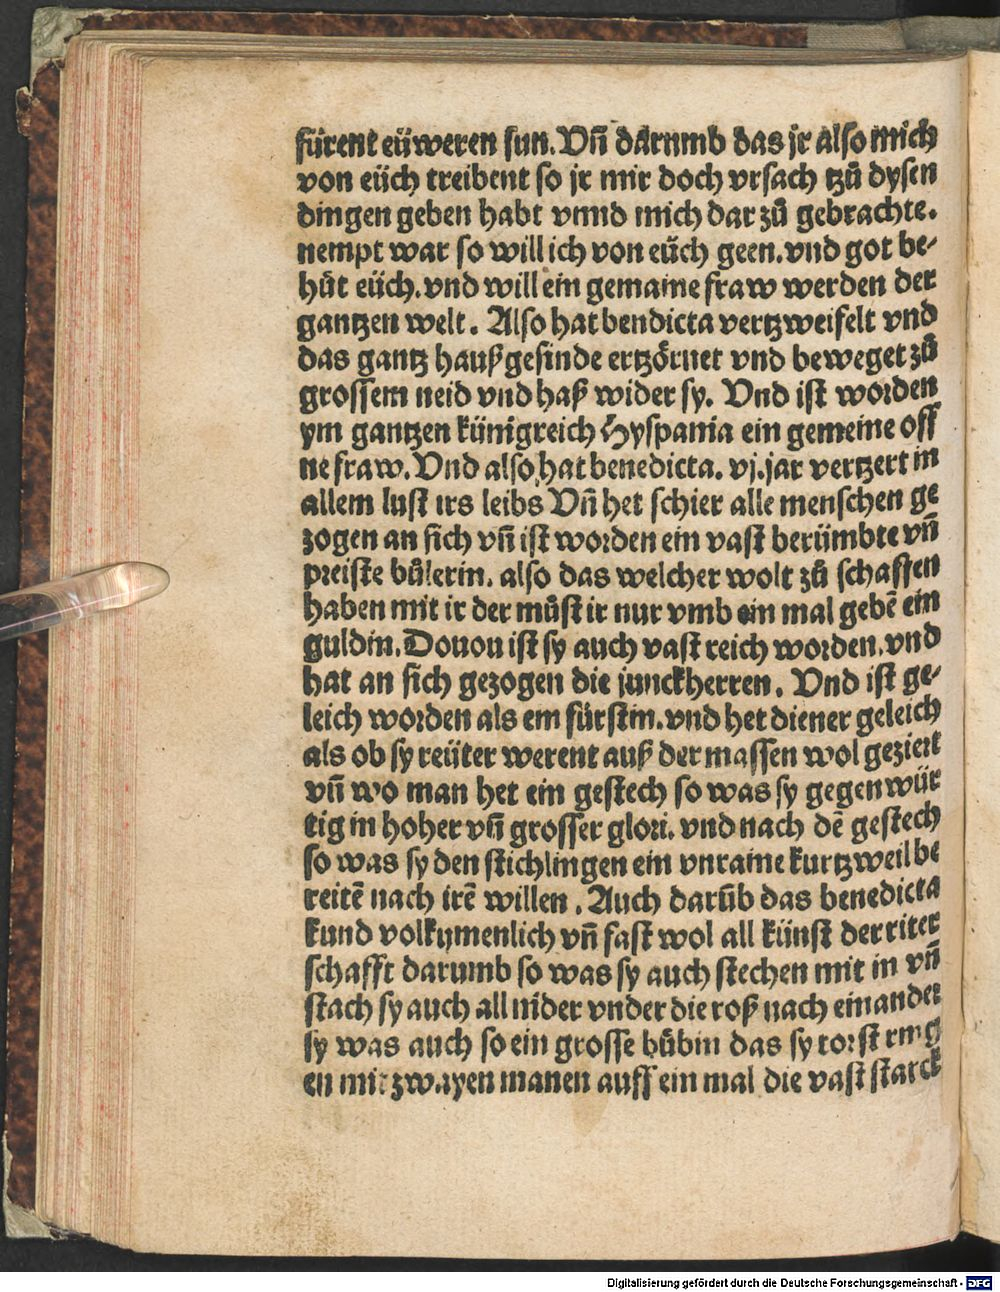 fürent eüweren sun. Vn̄ darumb das jr also mich
von eüch treibent so jr mir doch vrsach tzů dysen
dingen geben habt vnnd mich dar zů gebrachte.
nempt war so will ich von eüch geen. vnd got be-
hůt eüch. vnd will ein gemaine fraw werden der
gantzen welt. Also hat bendicta vertzweifelt vnd
das gantz haußgesinde ertzörnet vnd beweget zů
grossem neid vnd haß wider sy. Vnd ist worden
ym gantzen künigreich Hyspania ein gemeine off
ne fraw. Vnd also hat benedicta. vj. jar vertzert in
allem lust irs leibs Vn̄ het schier alle menschen ge
zogen an sich vn̄ ist worden ein vast berümbte vn̄
preiste bůlerin. also das welcher wolt zů schaffen
haben mit ir der můst ir nur vmb ein mal gebē ein
guldin. Douon ist sy auch vast reich worden. vnd
hat an sich gezogen die junckherren. Vnd ist ge-
leich worden als ein fürstin. vnd het diener geleich
als ob sy reüter werent auß der massen wol geziert
vn̄ wo man het ein gestech so was sy gegenwür
tig in hoher vn̄ grosser glori. vnd nach dē gestech
so was sy den stichlingen ein vnraine kurtzweil be
reitē nach irē willen. Auch darūb das benedicta
kund volkumenlich vn̄ fast wol all künst der riter
schafft darumb so was sy auch stechen mit in vn̄
stach sy auch all nider vnder die roß nach einander
sy was auch so ein grosse bůbin das sy torst ring
en mit zwayen manen auff ein mal die vast starck
Digitalisierung gefördert durch die Deutsche Forschungsgemeinschaft - DFG